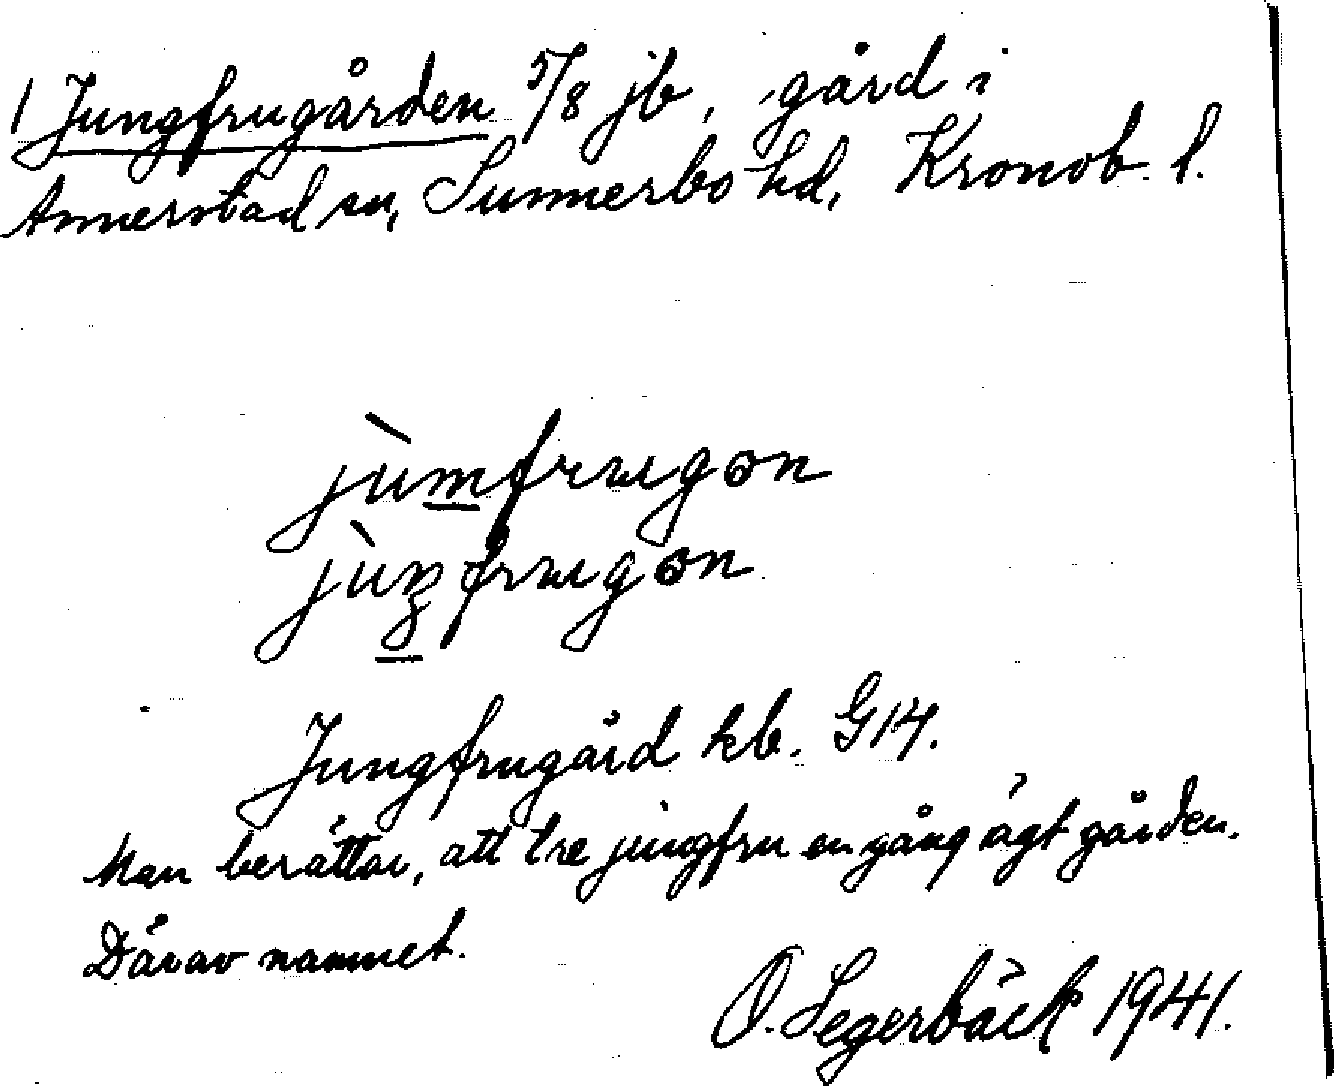 1 Jungfrugården 5/8 jb, gård i
Annerstad sn, Sunnerbo hd, Kronob. l.
jùmfrugon
jùŋfrugon
Jungfrugård kb. G14.
Man berättar, att tre jungfru en gång ägt gården.
Därav namnet.
O. Segerbäck 1941.